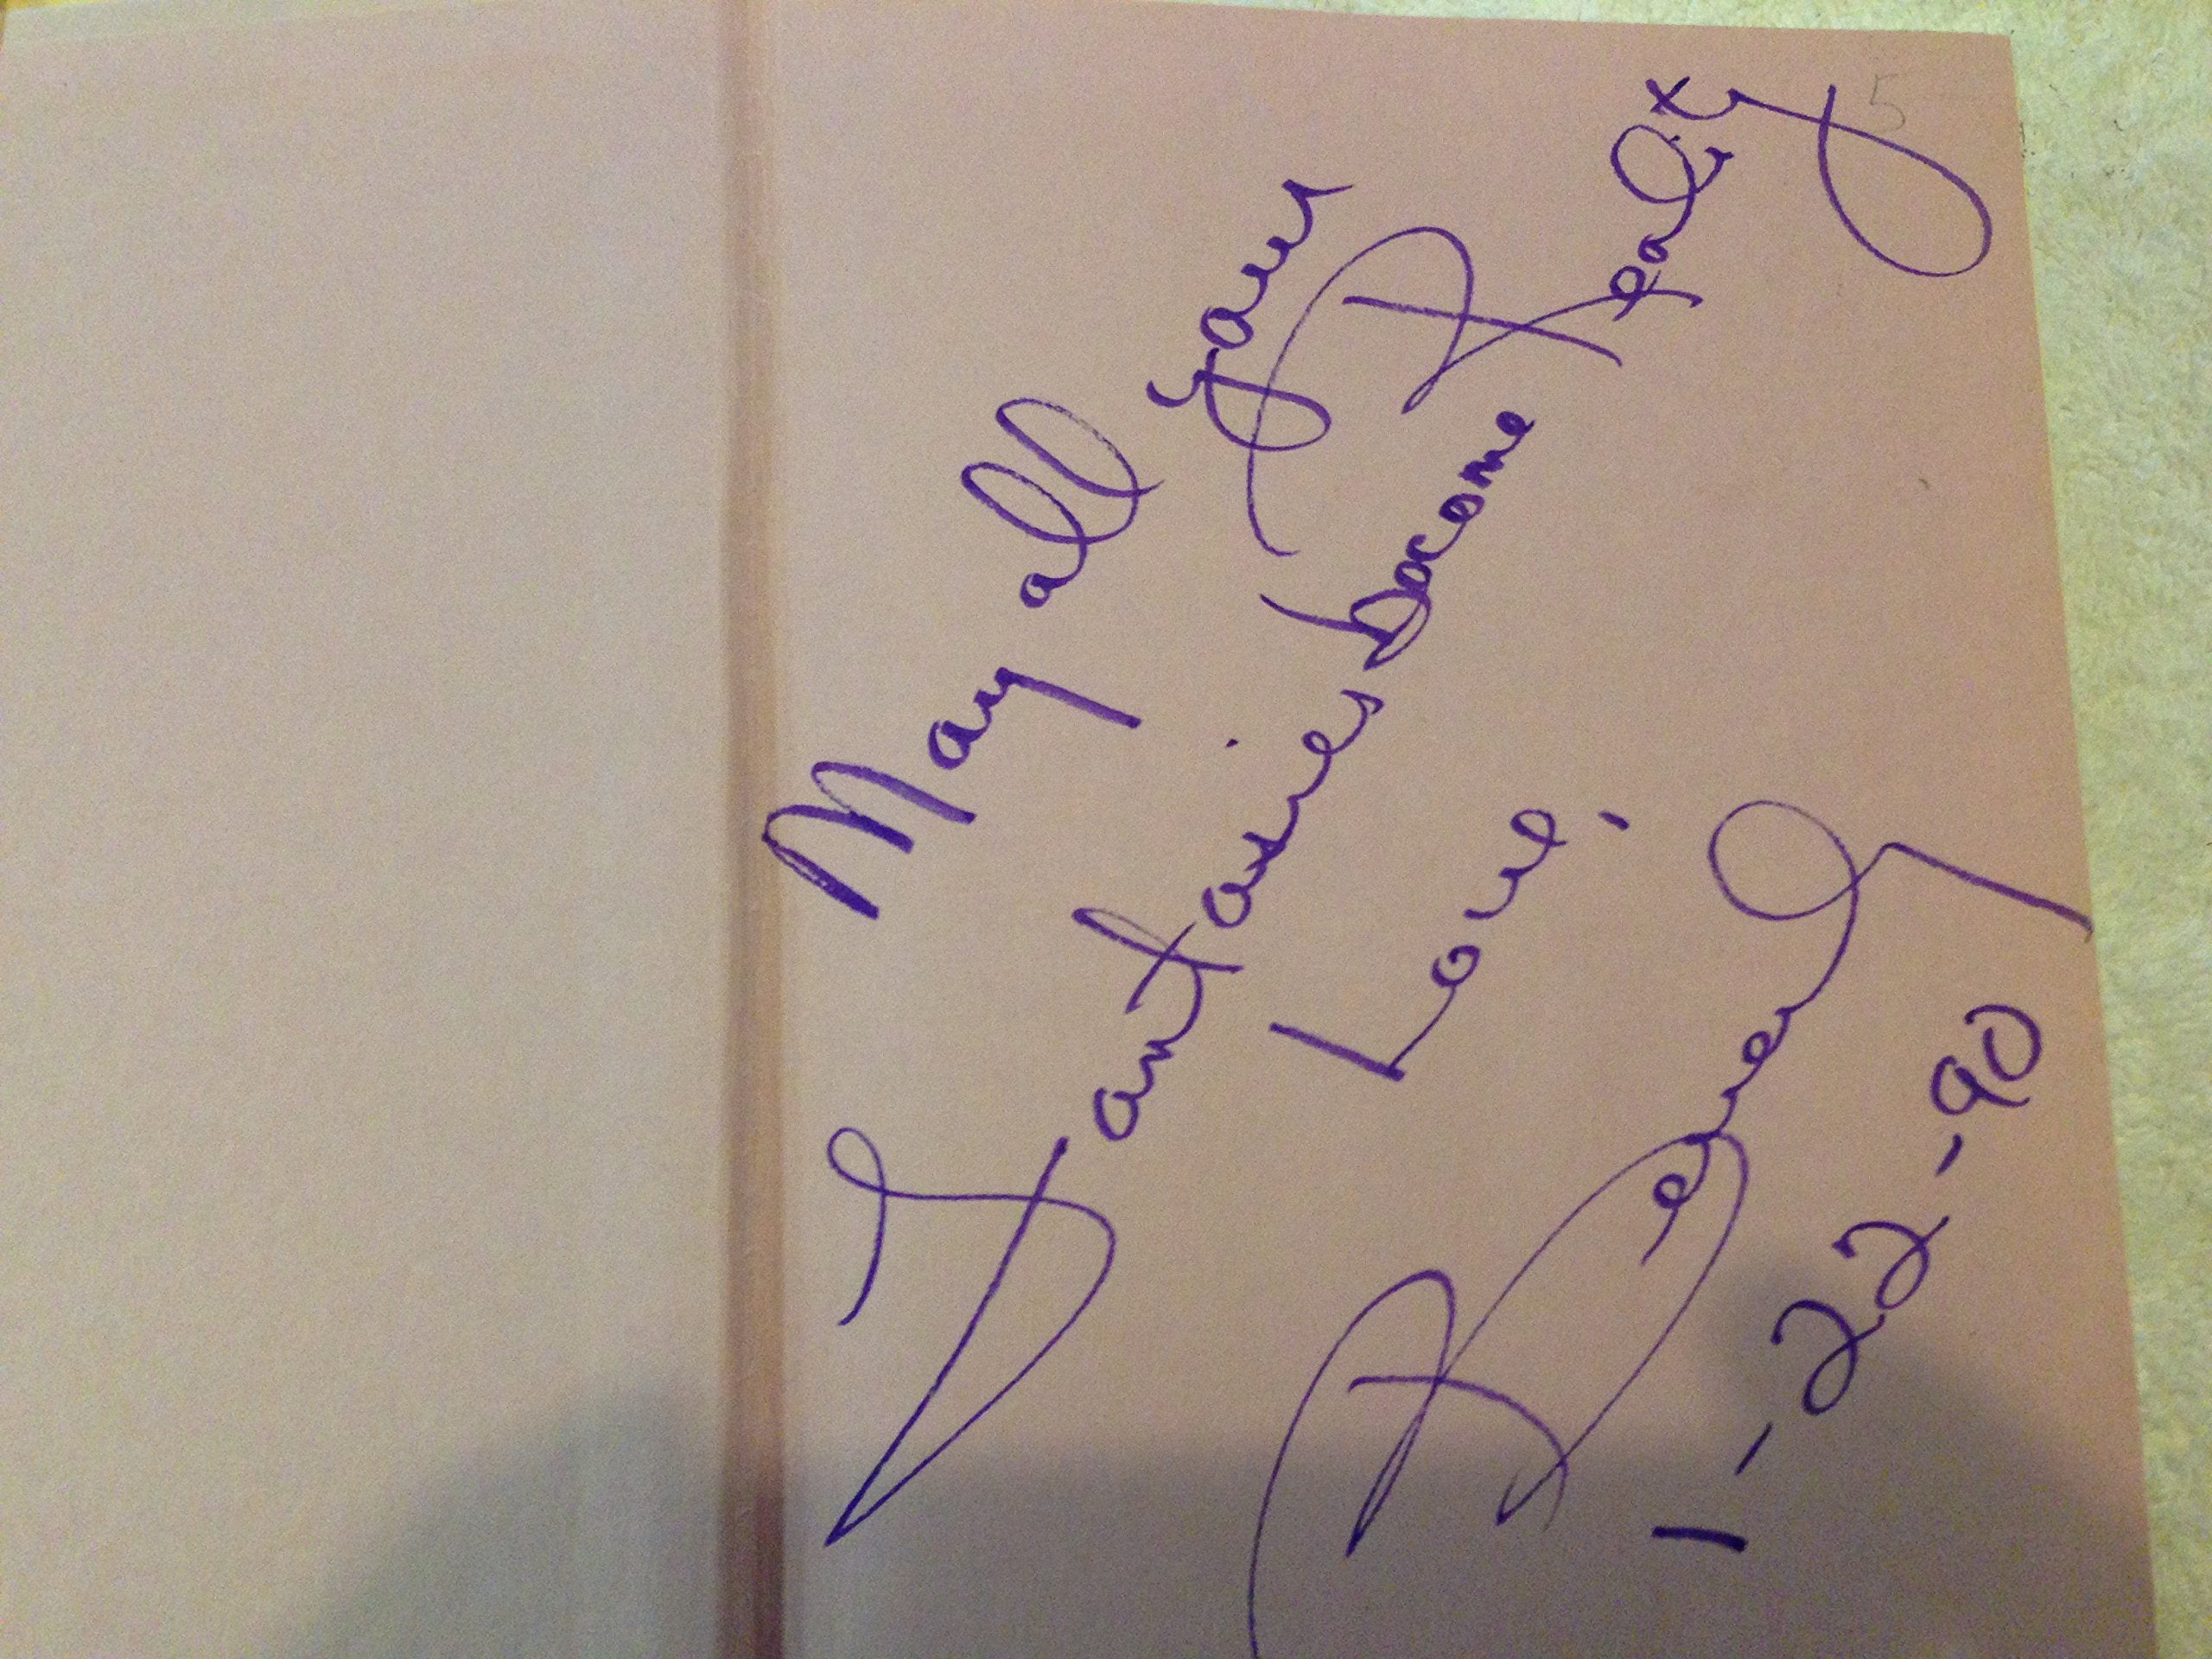 May all your
Fantasies become Reality
Love,
Beverly
1-22-90
5